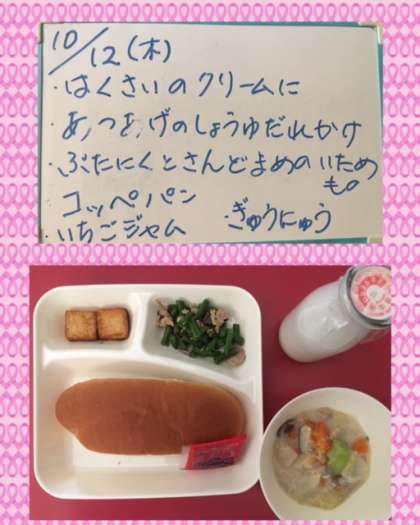 10/12(木)
・はくさいのクリームに
・あつあげのしょうゆだれかけ
・ぶたにくとさんどまめのいため
もの
コッペパン
・ぎゅうにゅう
・いちごジャム